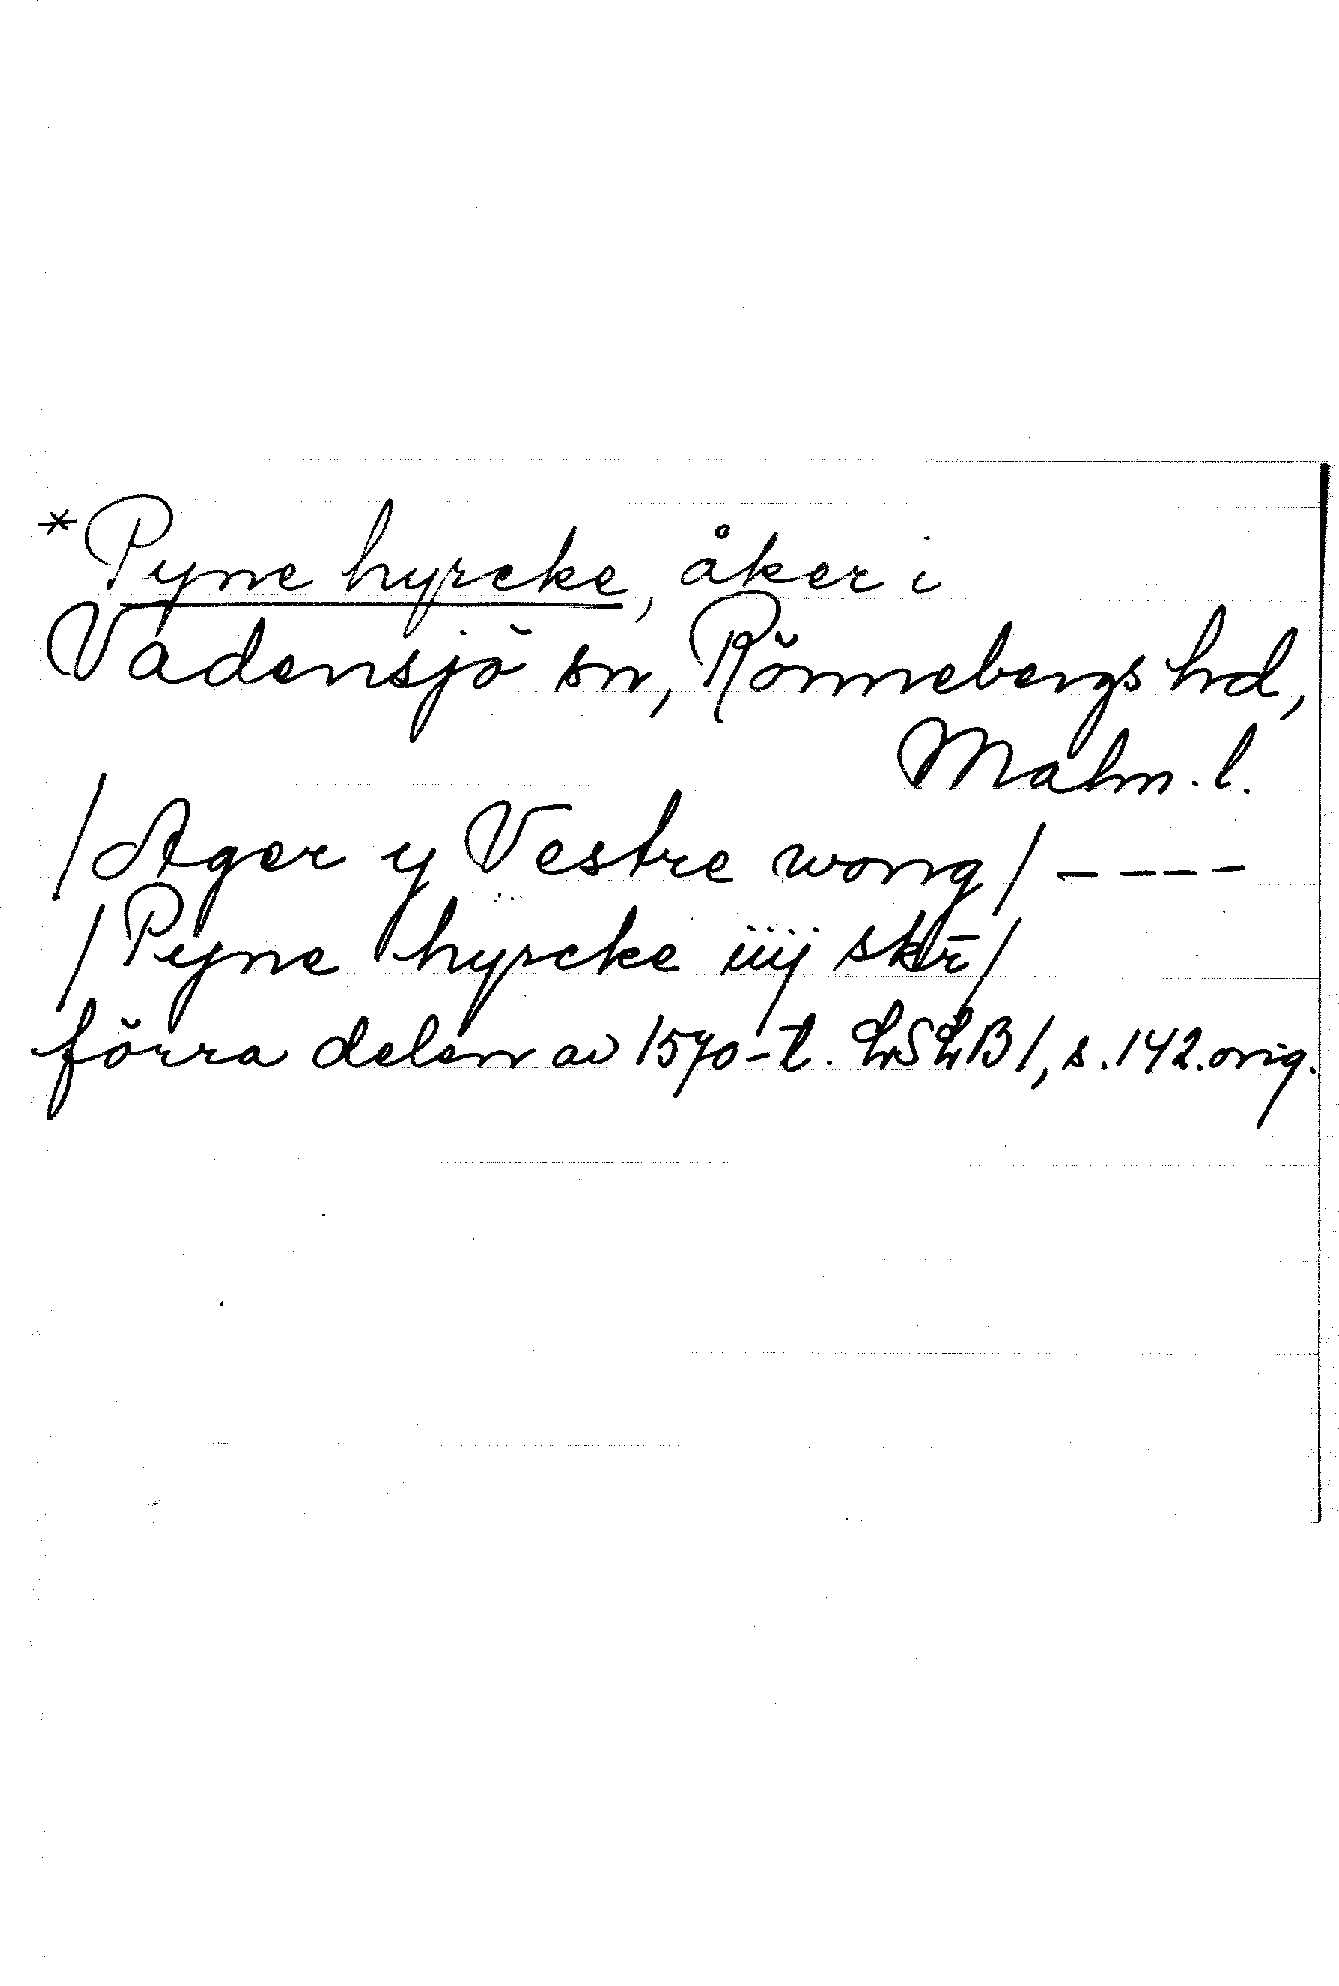 *Pyne hyrcke, åker i
Vadensjö sn, Rönnebergs hd,
Malm. l.
/Ager y Vestre wong/ ----
/Pyne hyrcke iiij skr̄/
förra delen av 1570-t. LSLB1, s. 142. orig.